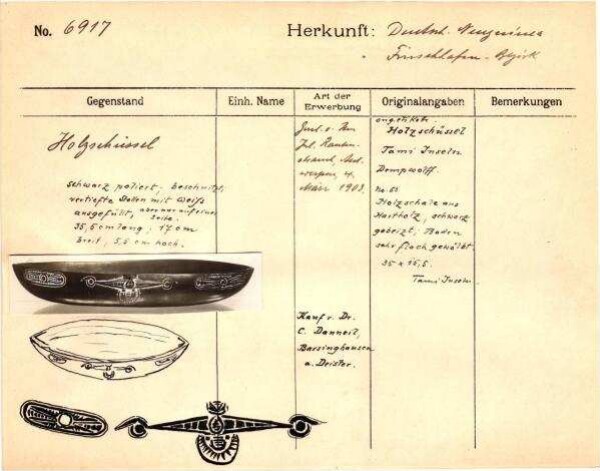 No. 6917
Herkunft: Deutsch. Neuguinea
" Finschhafen-Bezirk
Gegenstand
Einh. Name
Art der Erwerbung
Originalangaben
Bemerkungen
Holzschüssel
schwarz poliert; beschnitzt,
vertiefte Stellen mit Weiß
ausgefüllt, aber nur auf einer
Seite.
35,5 cm lang; 17 cm
breit; 5,5 cm hoch.
März 1903.
Kauf v. Dr.
C. Danneil,
Barsinghausen
a. Deister.
Holzschüssel
Tami Inseln
Dempwolff.
No. 61
Holzschale aus
Hartholz, schwarz
gebeizt; Boden
sehr flach gewölbt.
35 x 16,5.
Tami Inseln.